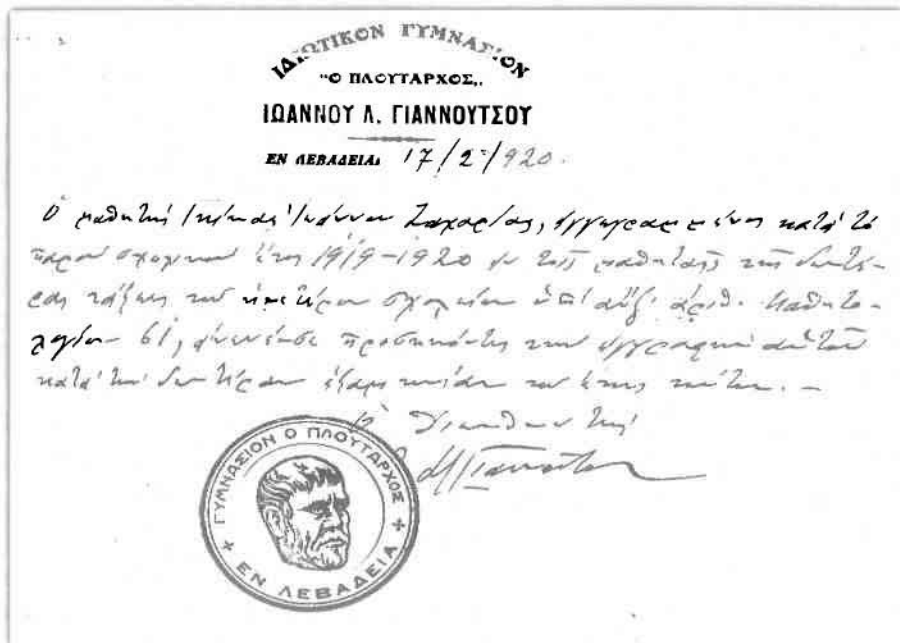 ΙΔΙΩΤΙΚΟΝ ΓΥΜΝΑΣΙΟΝ
"Ο ΠΛΟΥΤΑΡΧΟΣ„
ΙΩΑΝΝΟΥ Λ. ΓΙΑΝΝΟΥΤΣΟΥ
ΕΝ ΛΕΒΑΔΕΙΑι 17/2/920.
Ὁ μαθητὴς Ἰωάννου Ζαχαρίας, ἐγγεγραμμένος κατὰ τὸ
παρὸν σχολικὸν ἔτος 1919-1920 ἐν τοῖς μαθηταῖς τῆς δευτέ-
ρας τάξεως τοῦ ἡμετέρου σχολείου ὑπ' αὔξ. ἀριθ. μαθητο-
λογίου 61, ἀνενέωσε προσηκόντως τὴν ἐγγραφὴν αὐτοῦ
κατὰ τὴν δευτέραν ἑξαμηνίαν τοῦ ἔτους τούτου. –
Ὁ Διευθυντὴς
ΓΥΜΝΑΣΙΟΝ Ο ΠΛΟΥΤΑΡΧΟΣ
ΕΝ ΛΕΒΑΔΕΙΑ